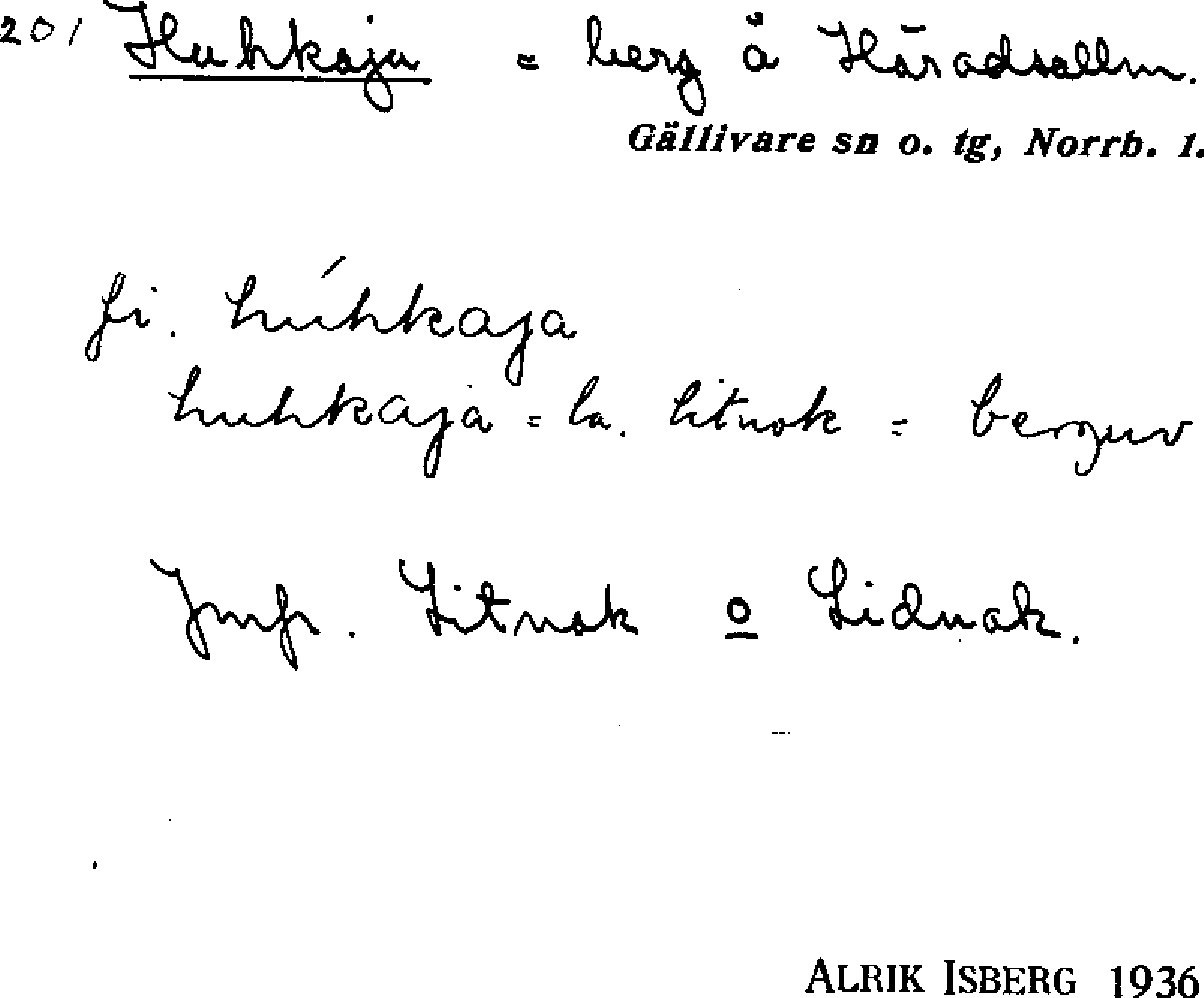 201 Huhkaja = berg å Häradsallm.
Gällivare sn o. tg, Norrb. l.
fi. húhkaja
huhkaja = la. litnok = berguv
Jmfr. Litnok o Lidnok.
ALRIK ISBERG 1936